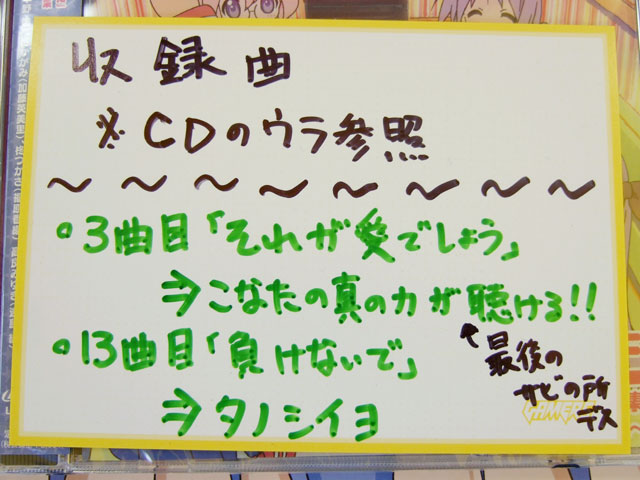 収録曲
※CDのウラ参照
～～～～～～～～
○3曲目「それが愛でしょう」
⇒こなたの真の力が聴ける!!
○13曲目「負けないで」
↑最後の
サビの所
デス
⇒タノシイヨ
GAMERS